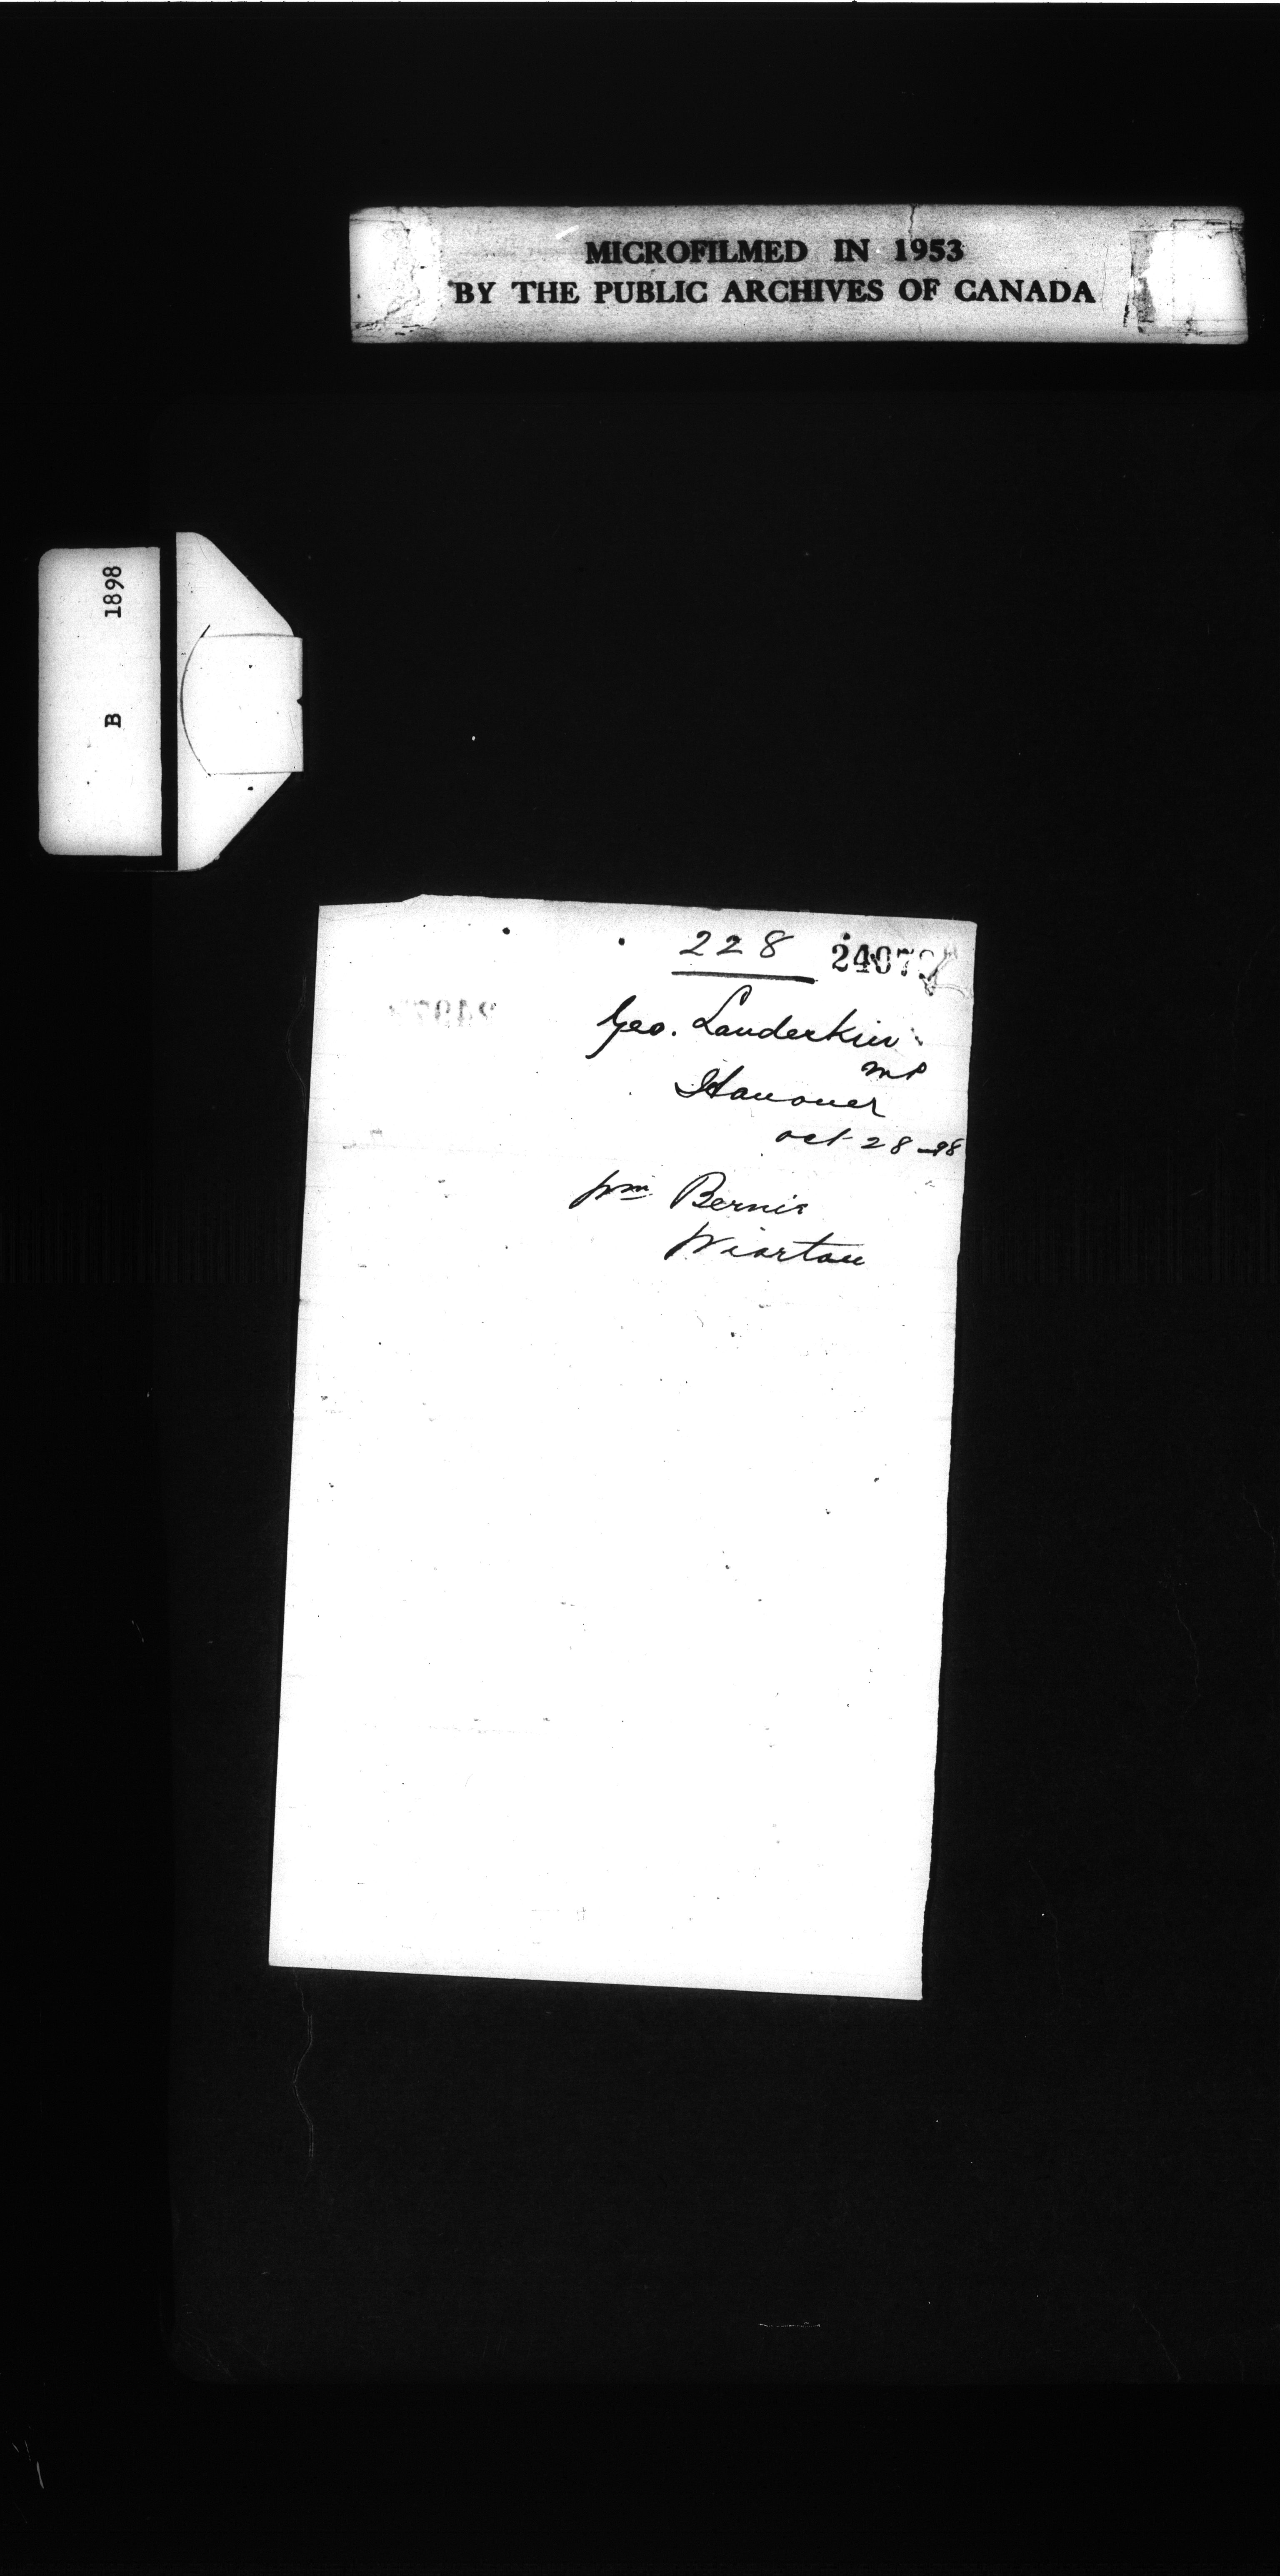 MICROFILMED IN 1953
BY THE PUBLIC ARCHIVES OF CANADA
B 1898
228
Geo. Landerkin
MP
Hanover
Oct 28-98
Wm Bernie
Wiarton